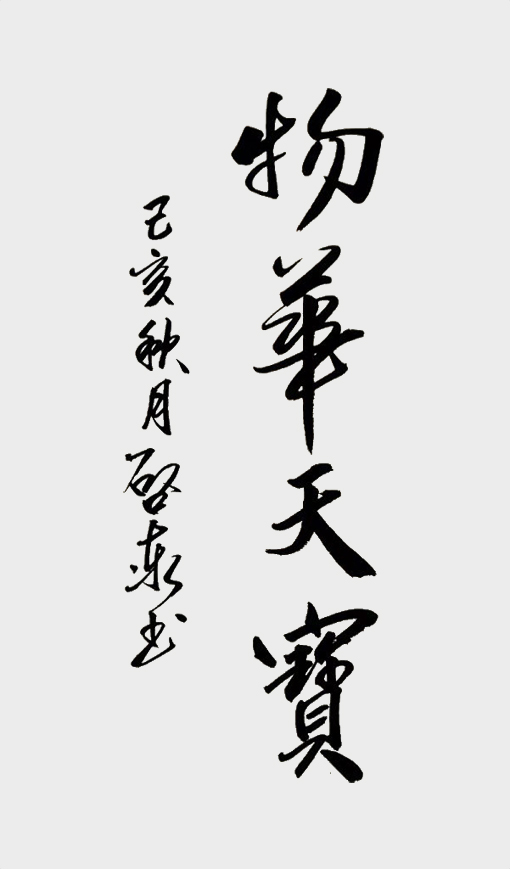 物華天寶
己亥秋月啓東书